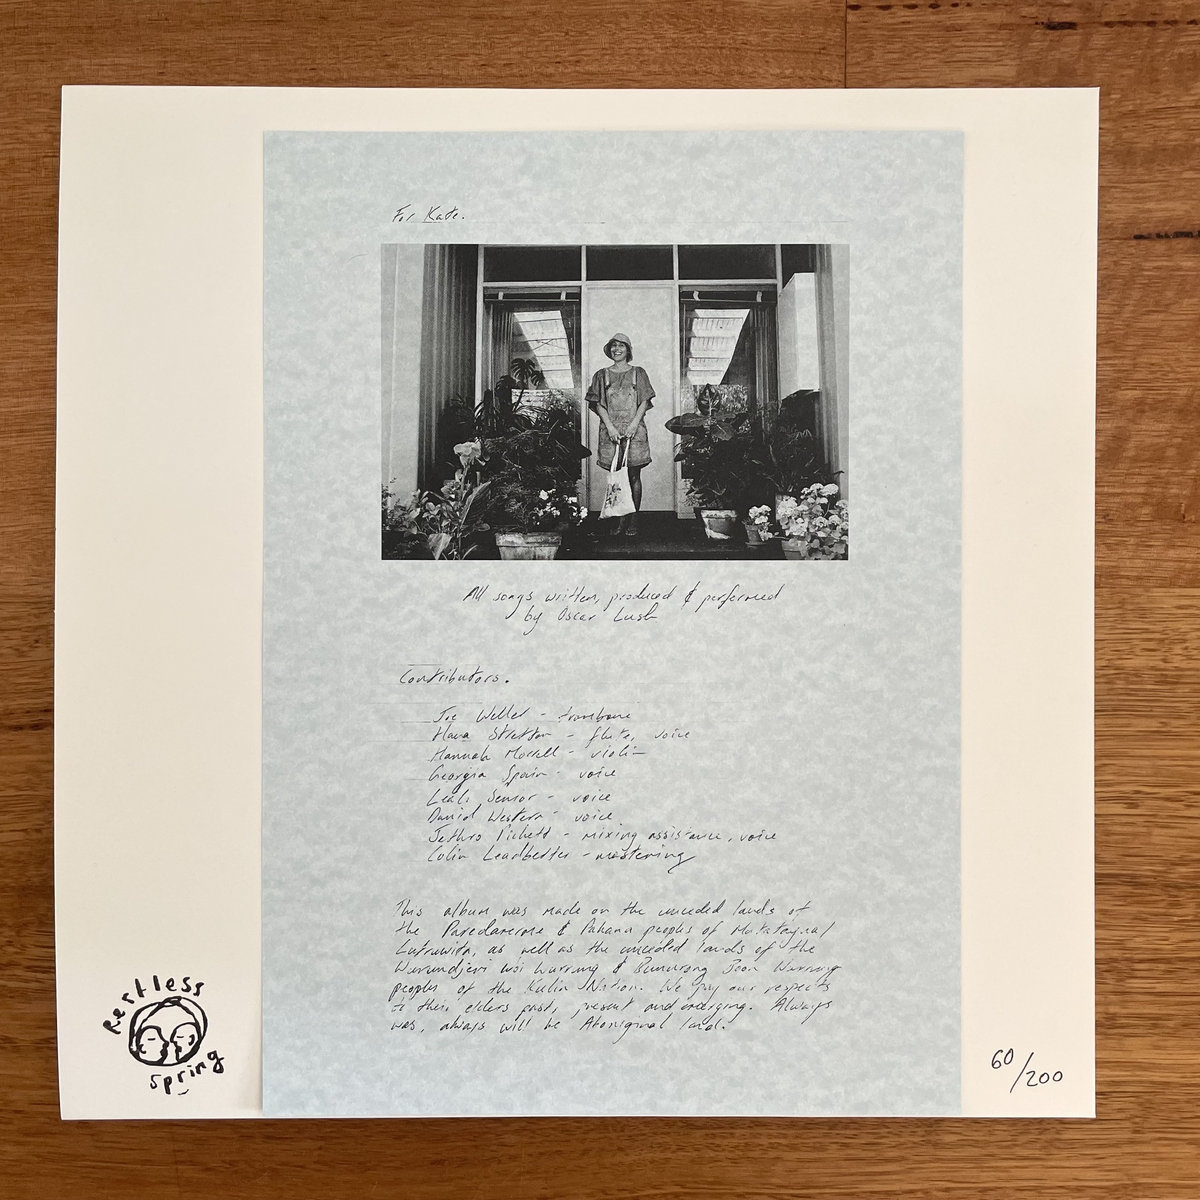 For Kate.
All songs written, produced & performed
by Oscar Lush
Contributors.
Joe Weller - trombone
Hana Stretton - flute, voice
Hannah Morrell - violin
Georgia Spain - voice
Leah Senior - voice
David Western - voice
Jethro Pickett - mixing assistance, voice
Colin Leadbetter - mastering
This album was made on the unceded lands of
the Paredarerme & Pahana peoples of
Lutruwita, as well as the unceded lands of the
Wurundjeri woi wurrung & Bunurong Boon Wurrung
peoples of the Kulin Nation. We pay our respects
to their elders past, present and emerging. Always
was, always will be Aboriginal land.
Restless
spring
60/200